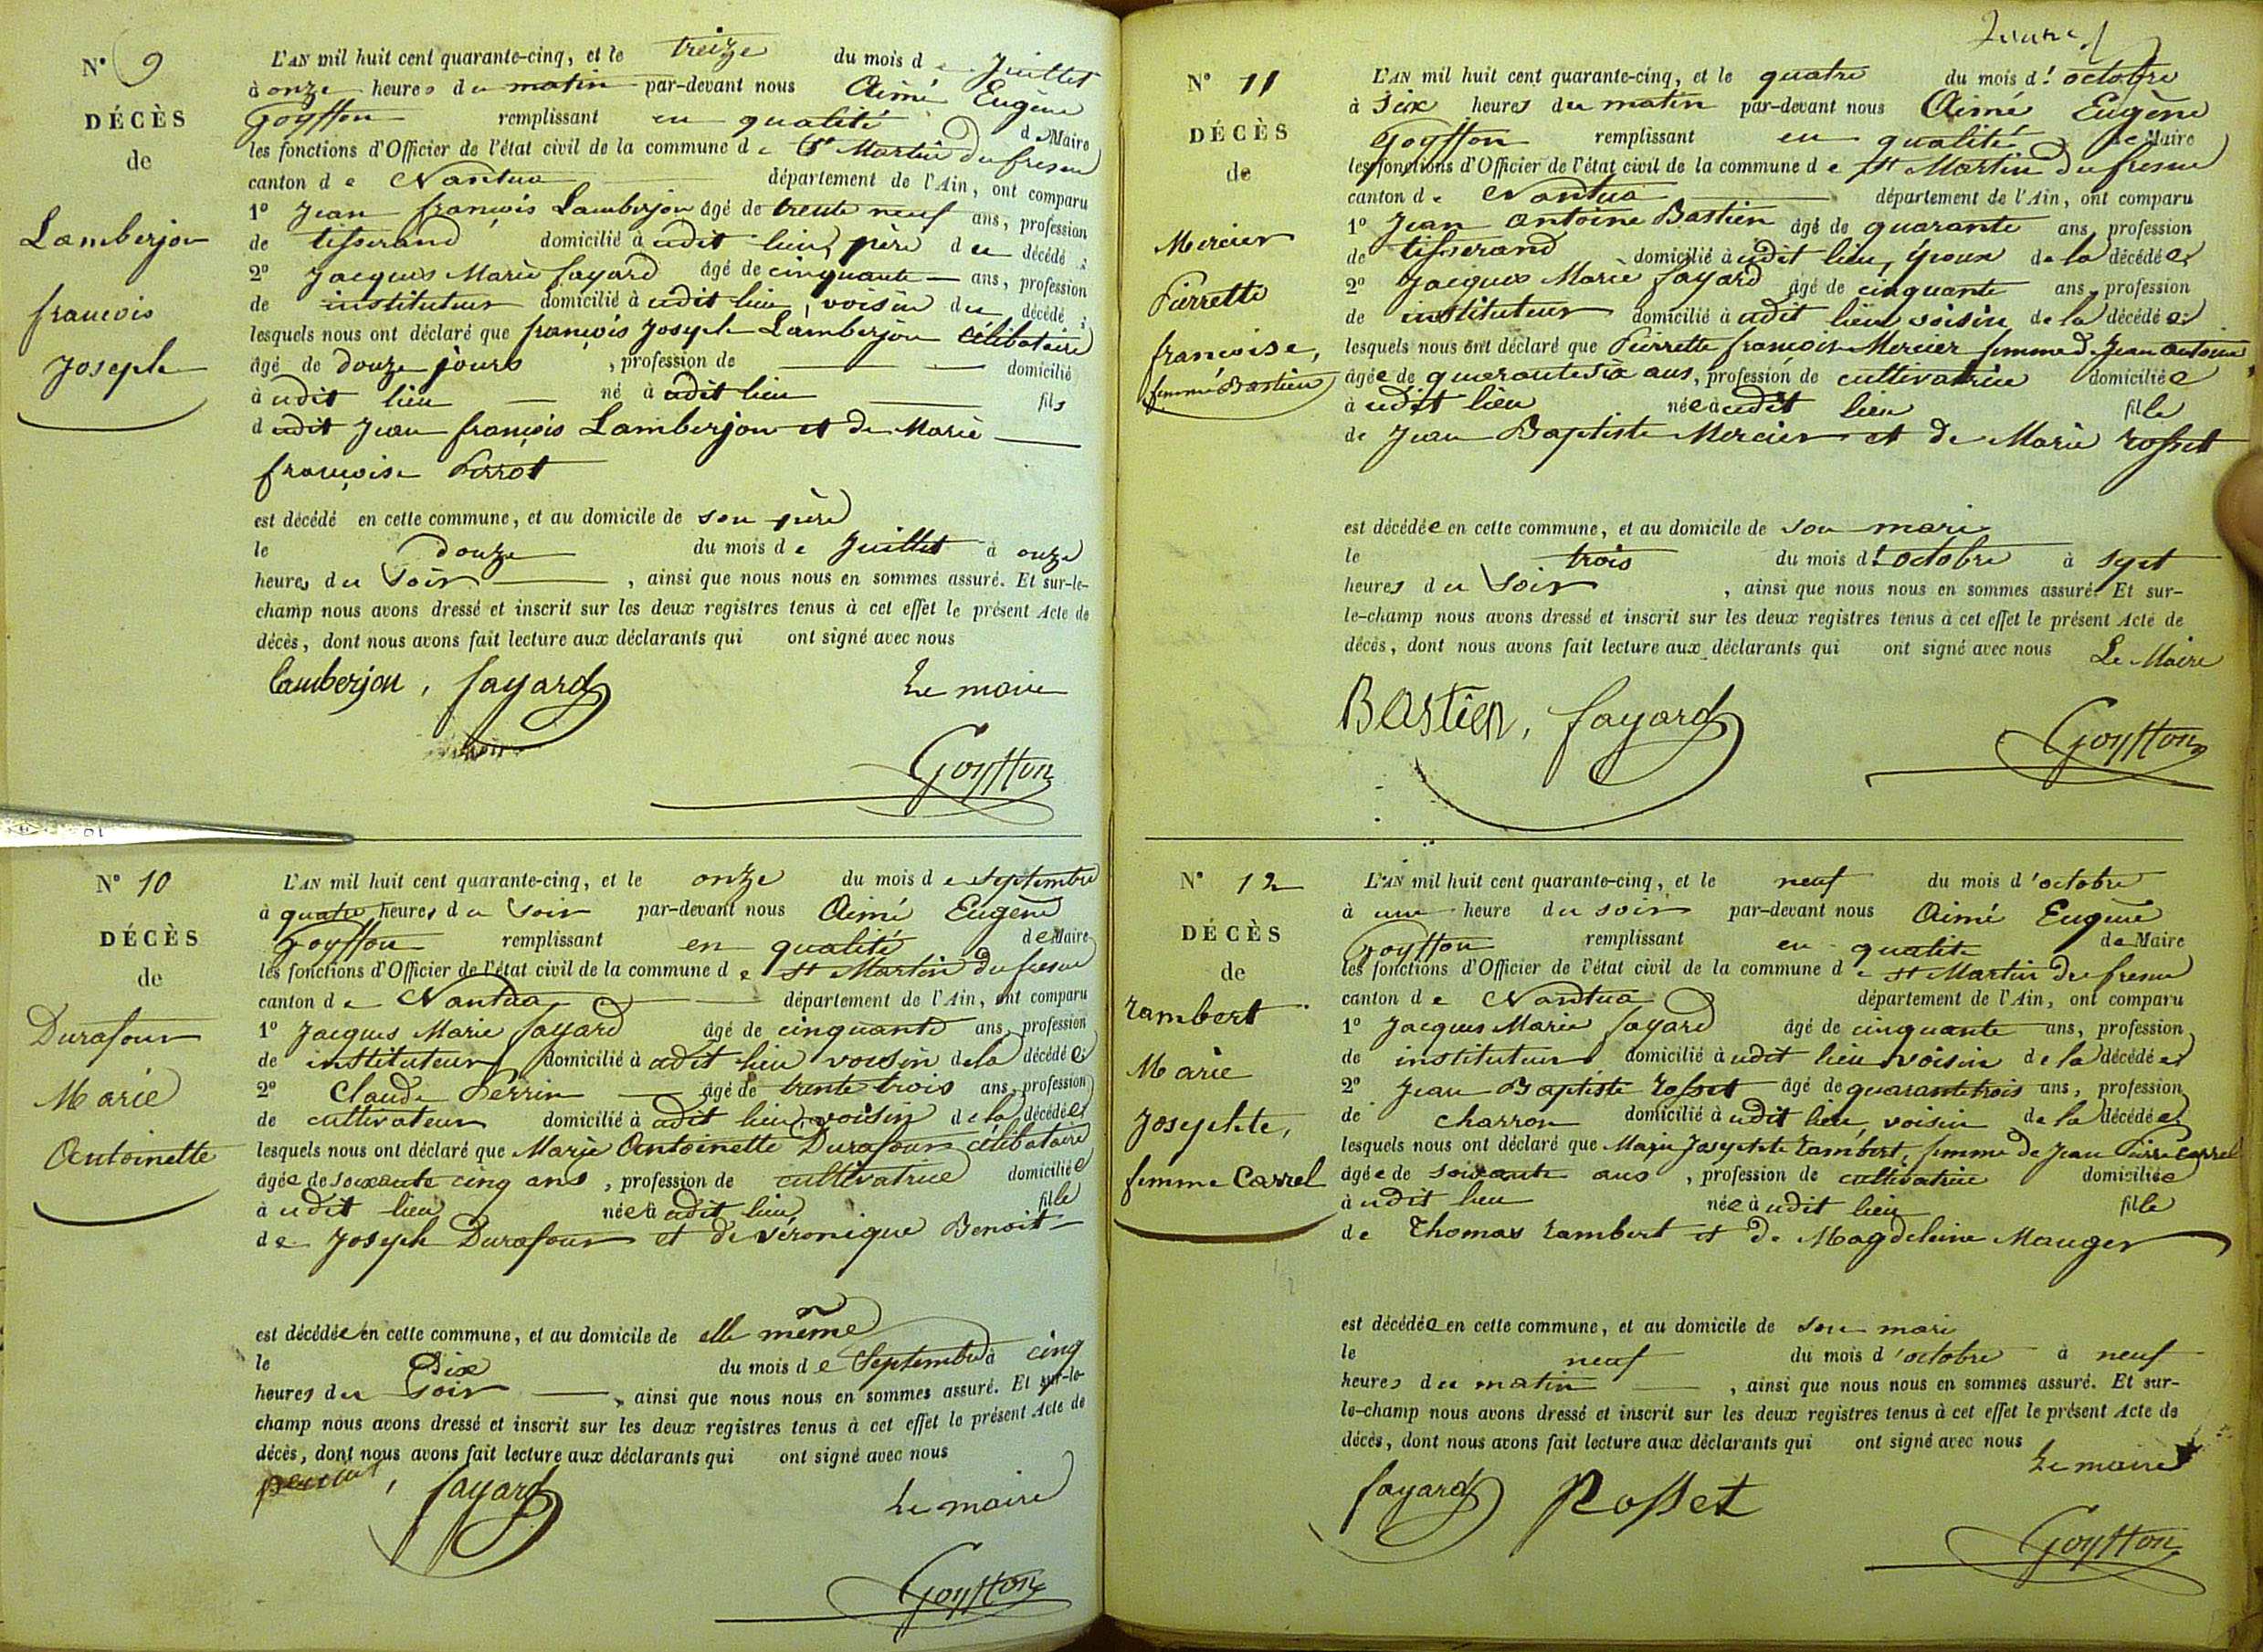 N° 9
DÉCÈS
de
Lamberjon
françois
Joseph
L'AN mil huit cent quarante-cinq, et le treize du mois de Juillet
à onze heures du matin par-devant nous Aimé Eugène
Goyffon remplissant en qualité de Maire
les fonctions d'Officier de l'état civil de la commune de St Martin du fresne
canton de Nantua département de l'Ain, ont comparu
1° Jean françois Lamberjon âgé de trente neuf ans, profession
de tisserand domicilié à udit lieu, père du décédé ;
2° Jacques Marie fayard âgé de cinquante ans, profession
de instituteur domicilié à udit lieu, voisin du décédé ;
lesquels nous ont déclaré que françois Joseph Lamberjon célibataire
âgé de douze jours , profession de domicilié
à udit lieu né à udit lieu fils
d udit Jean françois Lamberjon et de Marie
françoise Perrot
est décédé en cette commune, et au domicile de son père
le douze du mois de Juillet à onze
heures du Soir , ainsi que nous nous en sommes assuré. Et sur-le-
champ nous avons dressé et inscrit sur les deux registres tenus à cet effet le présent Acte de
décès, dont nous avons fait lecture aux déclarants qui ont signé avec nous
Lamberjon, fayard Le maire
Goyffon
N° 10
DÉCÈS
de
Durafour
Marie
Antoinette
L'AN mil huit cent quarante-cinq, et le onze du mois de septembre
à quatre heures du Soir par-devant nous Aimé Eugène
Goyffon remplissant en qualité de Maire
les fonctions d'Officier de l'état civil de la commune de St Martin du fresne
canton de Nantua département de l'Ain, ont comparu
1° Jacques Marie fayard âgé de cinquante ans, profession
de instituteur domicilié à udit lieu voisin de la décédée ;
2° Claude Perrin âgé de trente trois ans, profession
de cultivateur domicilié à udit lieu, voisin de la décédée ;
lesquels nous ont déclaré que Marie Antoinette Durafour célibataire
âgée de soixante cinq ans , profession de cultivatrice domiciliée
à udit lieu née à udit lieu fille
de Joseph Durafour et de Véronique Benoit
est décédée en cette commune, et au domicile de elle même
le Dix du mois de Septembre à cinq
heures du Soir , ainsi que nous nous en sommes assuré. Et sur-le-
champ nous avons dressé et inscrit sur les deux registres tenus à cet effet le présent Acte de
décès, dont nous avons fait lecture aux déclarants qui ont signé avec nous
, fayard Le maire
Goyffon
N° 11
DÉCÈS
de
Mercier
Pierrette
françoise,
femme Bastien
L'AN mil huit cent quarante-cinq, et le quatre du mois d'octobre
à six heures du matin par-devant nous Aimé Eugène
Goyffon remplissant en qualité de Maire
les fonctions d'Officier de l'état civil de la commune de St Martin du fresne
canton de Nantua département de l'Ain, ont comparu
1° Jean Antoine Bastien âgé de quarante ans, profession
de tisserand domicilié à udit lieu, époux de la décédée ;
2° Jacques Marie fayard âgé de cinquante ans, profession
de instituteur domicilié à udit lieu voisin de la décédée ;
lesquels nous ont déclaré que Pierrette françoise Mercier femme de Jean Antoine
âgée de quarante six ans, profession de cultivatrice domiciliée
à udit lieu née à udit lieu fille
de Jean Baptiste Mercier et de Marie rosset
est décédée en cette commune, et au domicile de son mari
le trois du mois d'octobre à sept
heures du Soir , ainsi que nous nous en sommes assuré. Et sur-
le-champ nous avons dressé et inscrit sur les deux registres tenus à cet effet le présent Acte de
décès, dont nous avons fait lecture aux déclarants qui ont signé avec nous Le Maire
Bastien, fayard
Goyffon
N° 12
DÉCÈS
de
rambert
Marie
Josephte,
femme Carrel
L'AN mil huit cent quarante-cinq, et le neuf du mois d'octobre
à une heure du soir par-devant nous Aimé Eugène
Goyffon remplissant en qualité de Maire
les fonctions d'Officier de l'état civil de la commune de St Martin du fresne
canton de Nantua département de l'Ain, ont comparu
1° Jacques Marie fayard âgé de cinquante ans, profession
de instituteur domicilié à udit lieu voisin de la décédée ;
2° Jean Baptiste rosset âgé de quarante trois ans, profession
de charron domicilié à udit lieu, voisin de la décédée ;
lesquels nous ont déclaré que Marie Josephte rambert, femme de Jean Pierre Carrel
âgée de soixante ans , profession de cultivatrice domiciliée
à udit lieu née à udit lieu fille
de Thomas rambert et de Magdeleine Mauger
est décédée en cette commune, et au domicile de son mari
le neuf du mois d'octobre à neuf
heures du matin , ainsi que nous nous en sommes assuré. Et sur-
le-champ nous avons dressé et inscrit sur les deux registres tenus à cet effet le présent Acte de
décès, dont nous avons fait lecture aux déclarants qui ont signé avec nous
Le maire
fayard Rosset
Goyffon